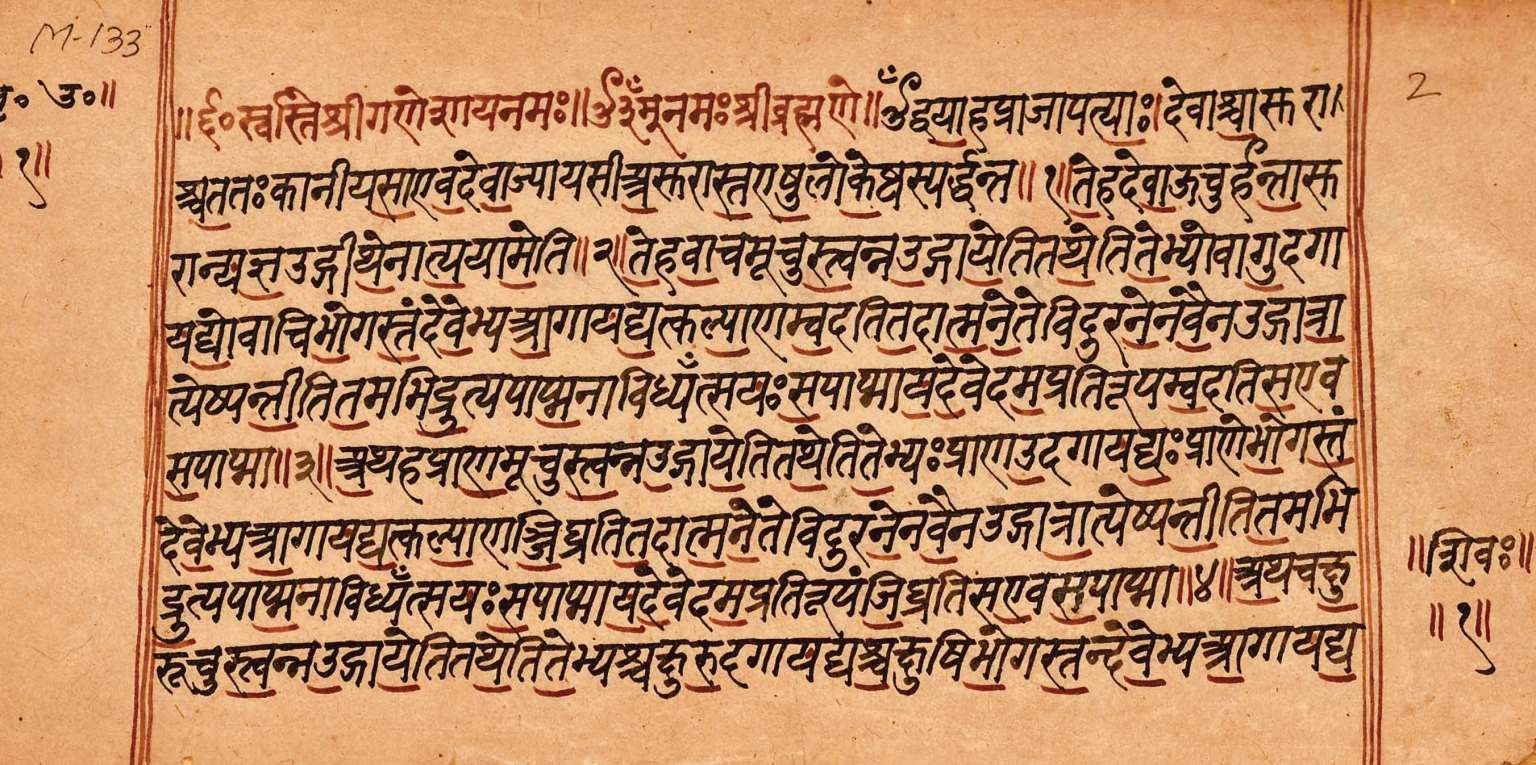 M-133
बृ॰ उ॰॥
१॥
2
॥ र्द्द॰ स्वस्ति श्रीगणेशायनमः॥ ॐ नमः श्रीब्रह्मणे॥ ॐ द्वयाहप्राजापत्याः। देवाश्चासुरा
श्चततः कानीयसाएवदेवाज्यायसाअसुरास्तएषुलोकेष्वस्पर्द्धन्त॥ १॥ तेहदेवाऊचुर्हन्तासु
रान्यज्ञउद्गीथेनात्ययामेति॥ २॥ तेहवाचमूचुस्त्वन्नउद्गायेतितथेतितेभ्योवागुदगा
यद्योवाचिभोगस्तंदेवेभ्यआगायद्यत्कल्याणम्वदतितदात्मनेतेविदुरनेनवैनउद्गात्रा
त्येष्यन्तीतितमभिद्रुत्यपाप्मनाविध्यँत्सयः सपाप्मायदेवेदमप्रतिरूपम्वदतिसएव
सपाप्मा॥ ३॥ अथहप्राणमूचुस्त्वन्नउद्गायेतितथेतितेभ्यः प्राणउदगायद्यः प्राणेभोगस्तं
देवेभ्यआगायद्यत्कल्याणञ्जिघ्रतितदात्मनेतेविदुरनेनवैनउद्गात्रात्येष्यन्तीतितमभि
द्रुत्यपाप्मनाविध्यँत्सयः सपाप्मायदेवेदमप्रतिरूपंजिघ्रतिसएवसपाप्मा॥ ४॥ अथचक्षु
रूचुस्त्वन्नउद्गायेतितथेतितेभ्यश्चक्षुरुदगायद्यश्चक्षुषिभोगस्तन्देवेभ्यआगायद्य
॥ शिवः॥
॥ १॥